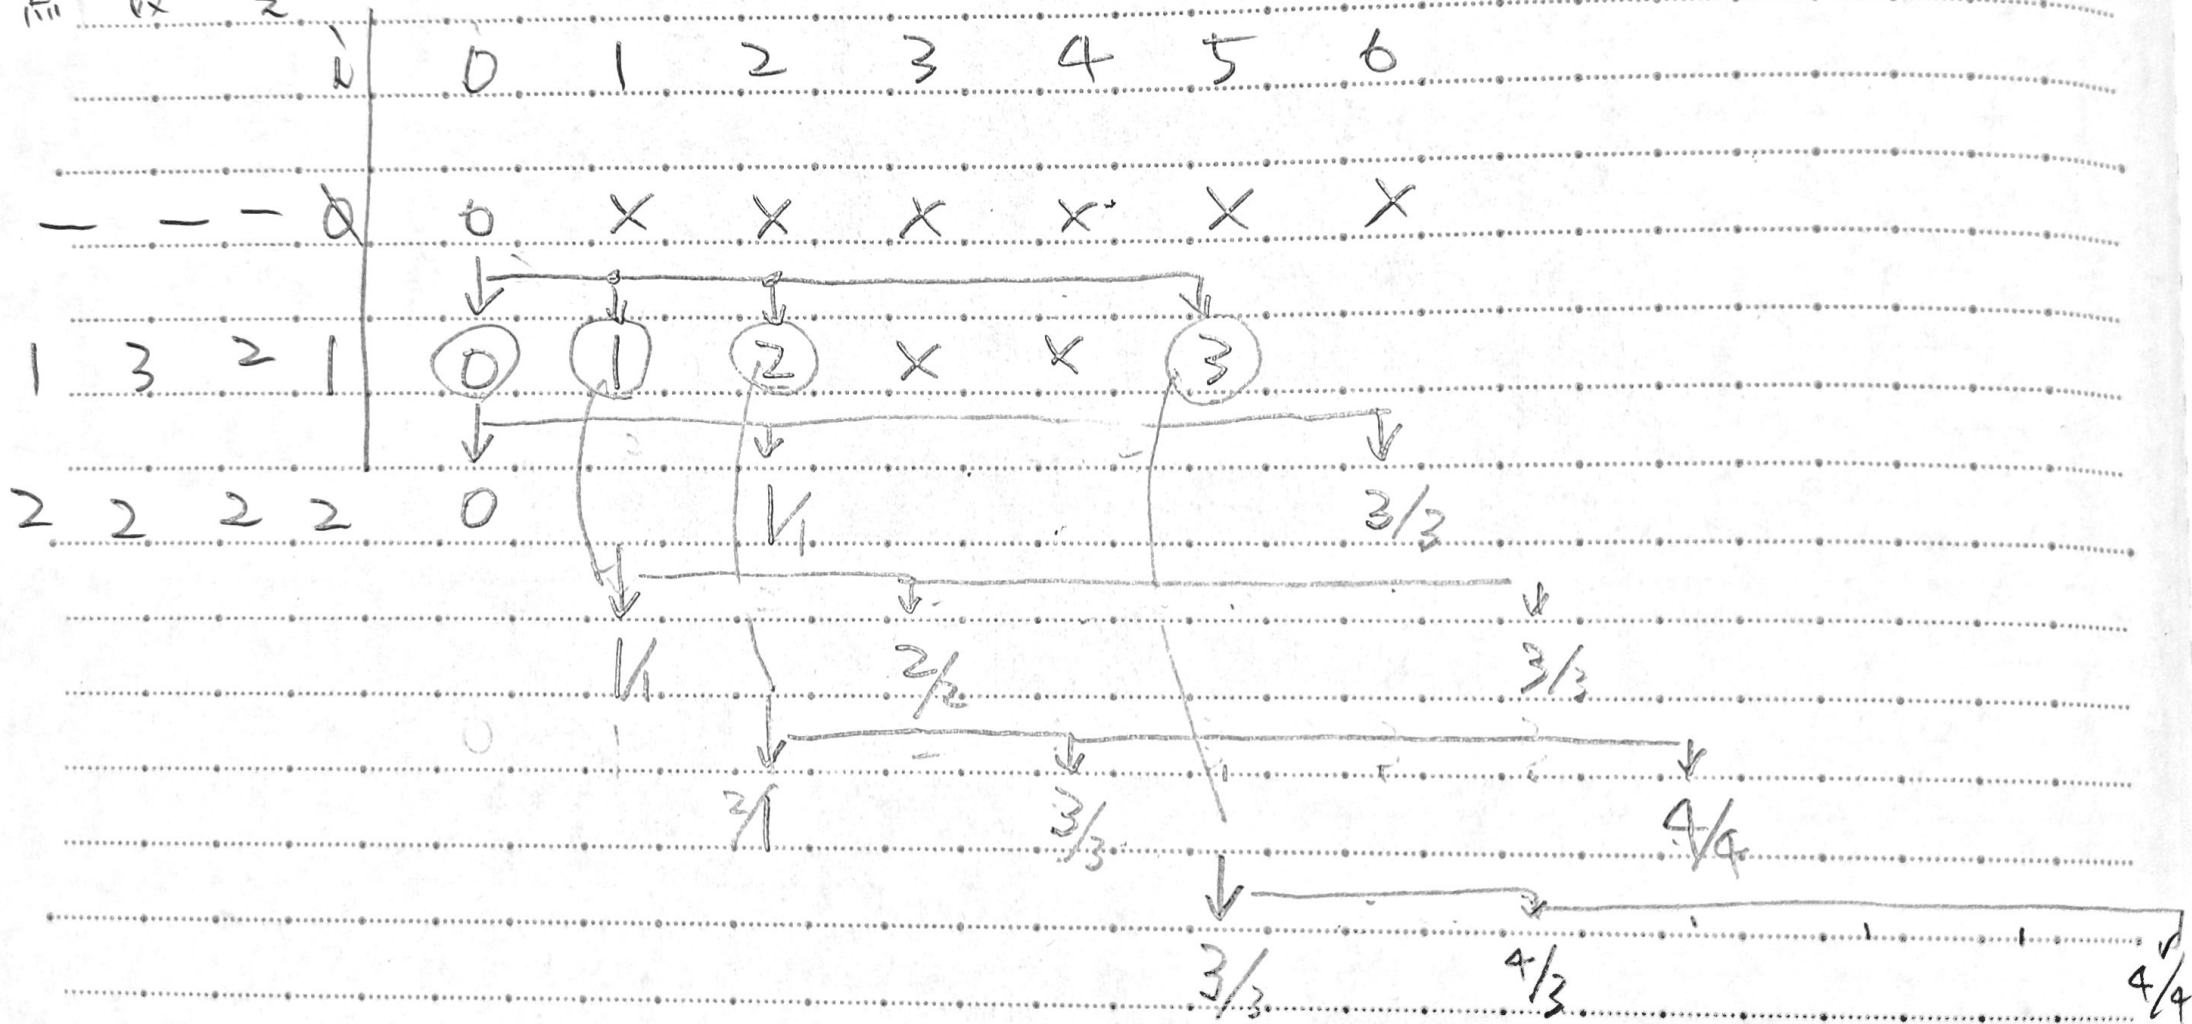 i 0 1 2 3 4 5 6
— — — 0 0 × × × × × ×
1 3 2 1 0 1 2 × × 3
2 2 2 2 0 1/1 3/3
1/1 2/2 3/3
2/1 3/3 4/4
3/3 4/3 4/4